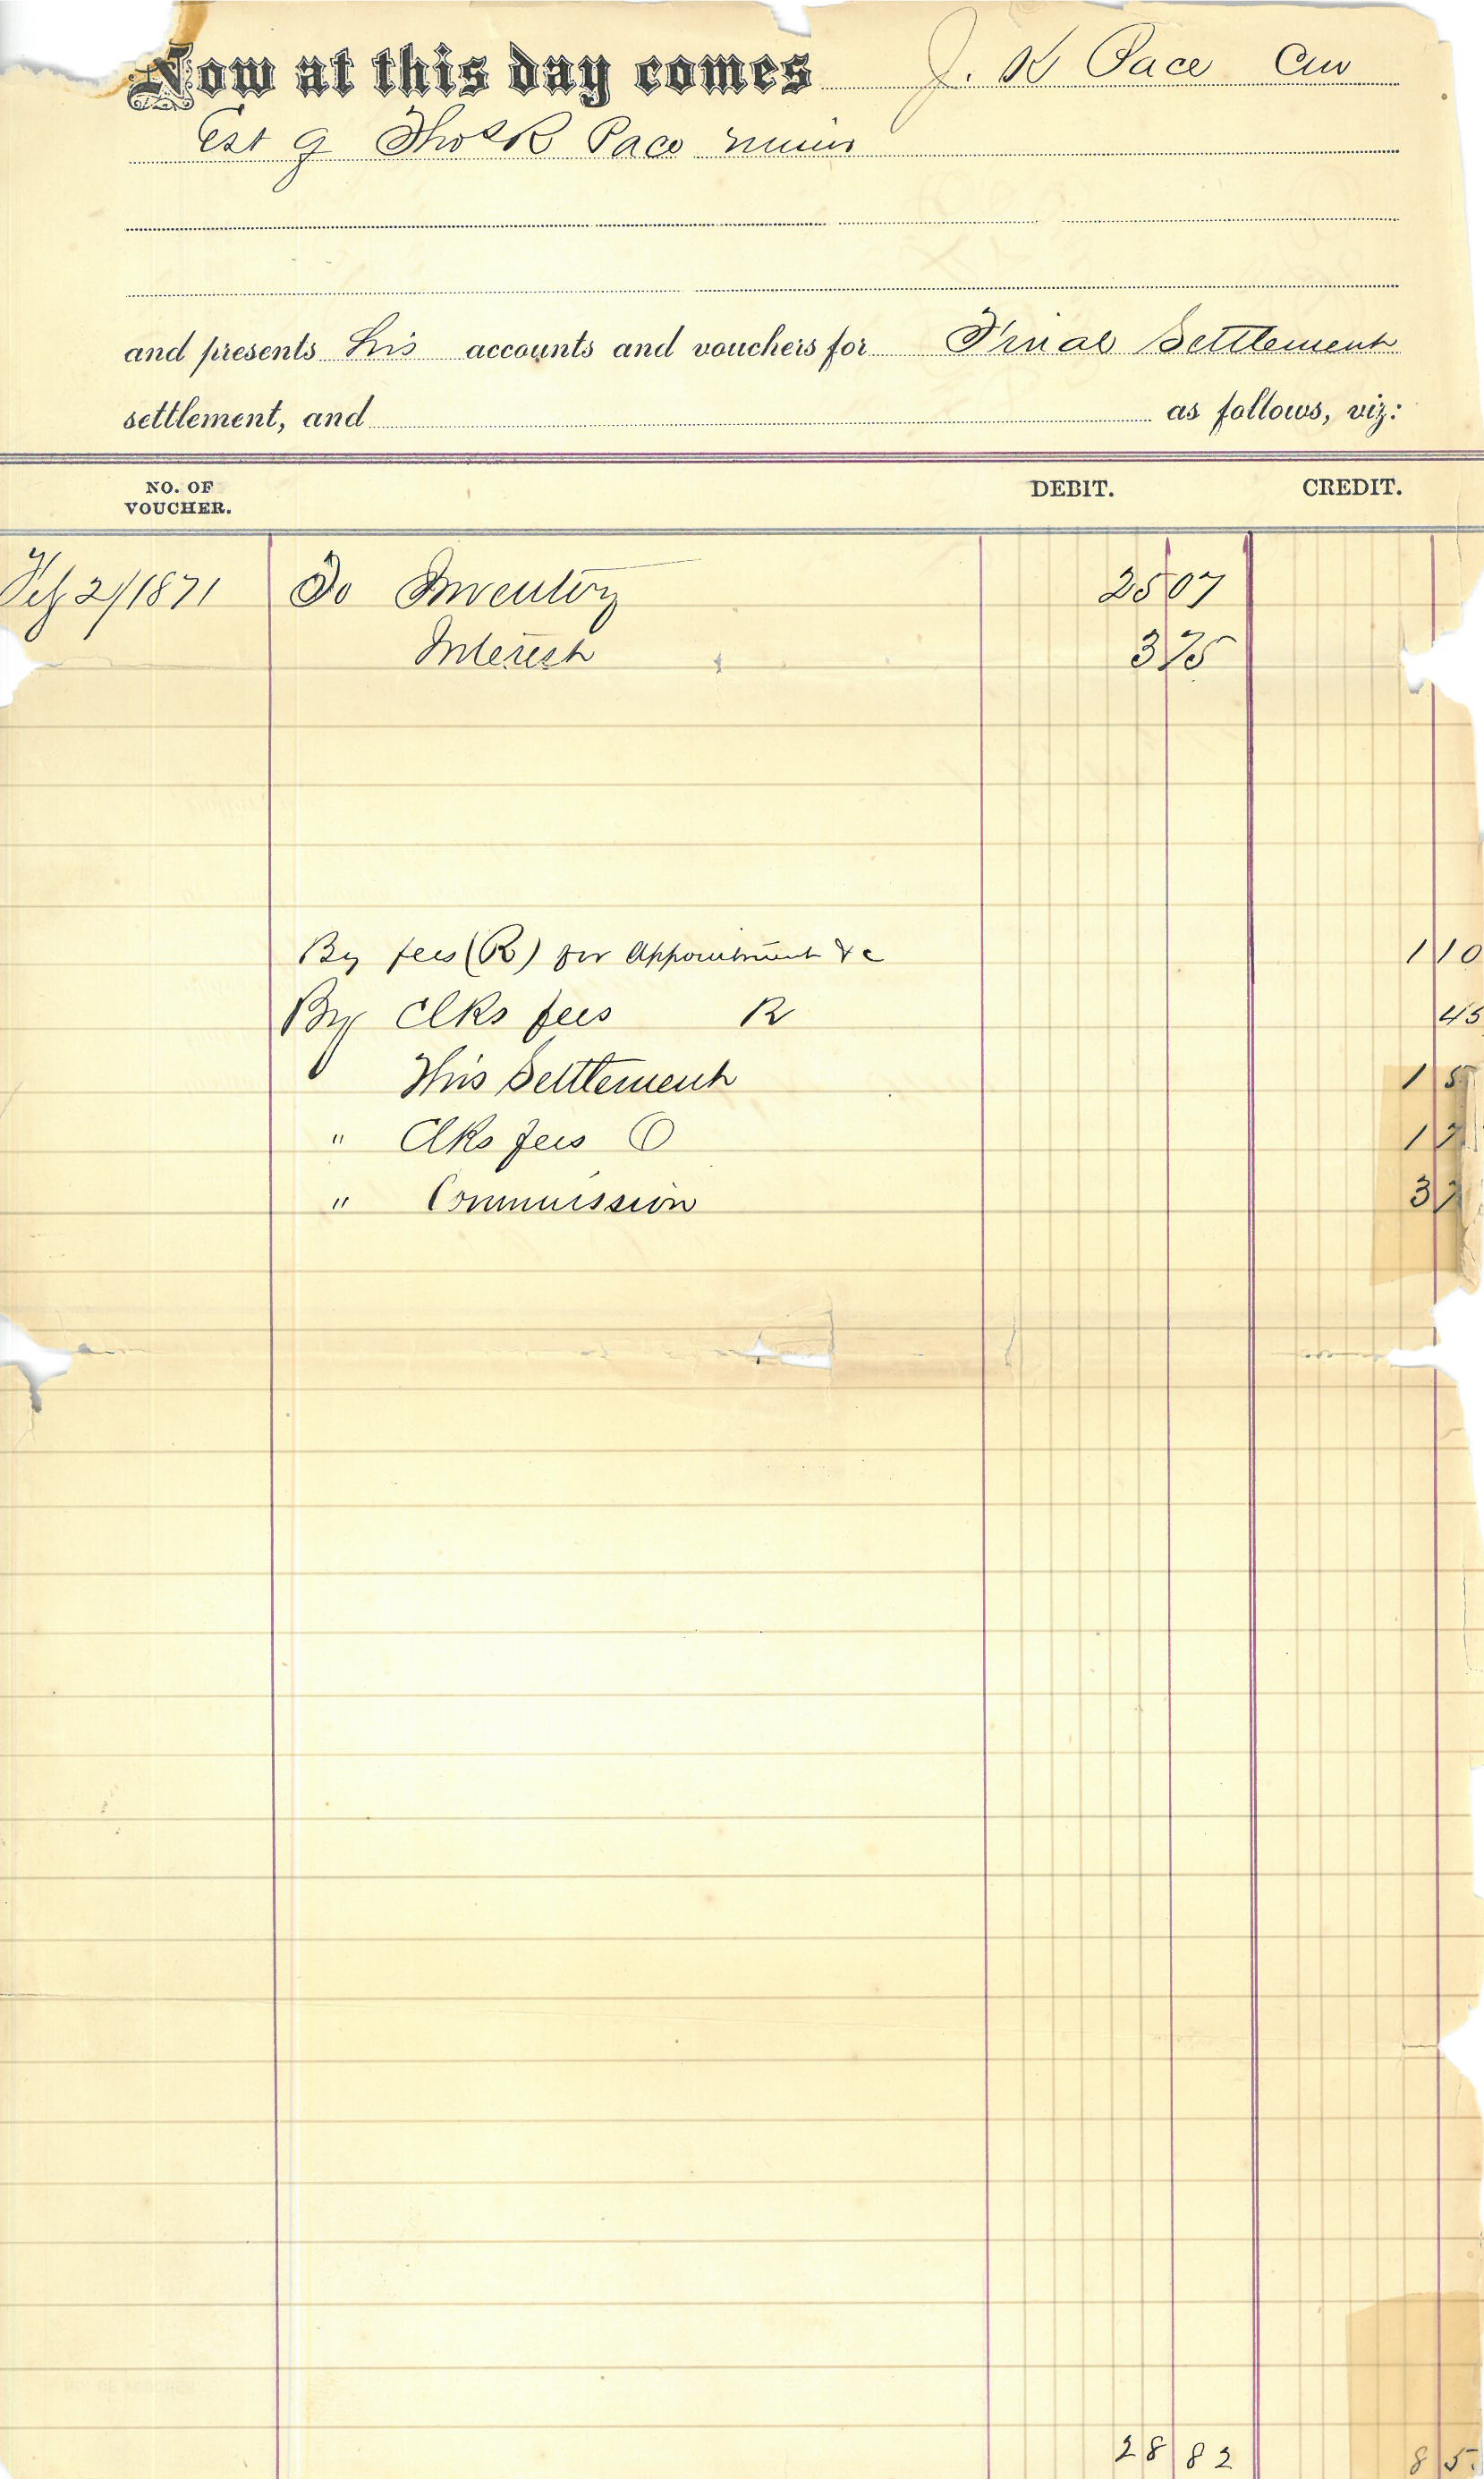 Now at this day comes J. K Pace Cur
Est of Thos R Pace minor
and presents his accounts and vouchers for Final Settlement
settlement, and as follows, viz:
NO. OF VOUCHER. DEBIT. CREDIT.
Feb 2/1871 To Inventory 25 07
Interest 3 75
By fees (R) for Appointment &c 1 10
By Clks fees R 45
This Settlement 1 5
" Clks fees O 1 7
" Commission 3 7
28 82 8 5